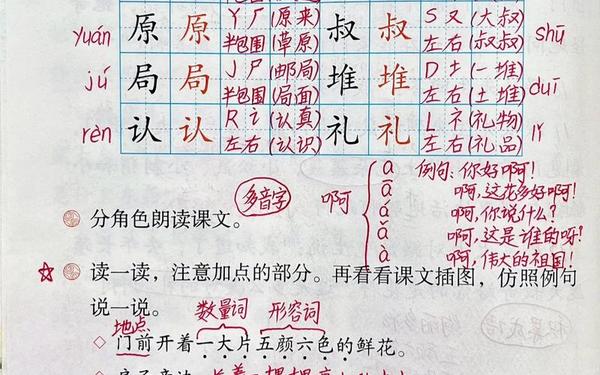 yuán 原 原 Y 厂(原来) 叔 叔 S 又(大叔) shū
半包围(草原) 左右(叔叔)
jú 局 局 J 尸(邮局) 堆 堆 D 土(一堆) duī
半包围(局面) 左右(土堆)
rèn 认 认 R 讠(认真) 礼 礼 L 礻(礼物) lǐ
左右(认识) 左右(礼品)
多音字 啊 a 例句:你好啊!
ā 啊,这花多好啊!
á 啊,你说什么?
ǎ 啊,这是谁的呀!
à 啊,伟大的祖国!
分角色朗读课文。
☆ 读一读,注意加点的部分。再看看课文插图,仿照例句
说一说。
地点 数量词 形容词
◇ 门前开着一大片五颜六色的鲜花。